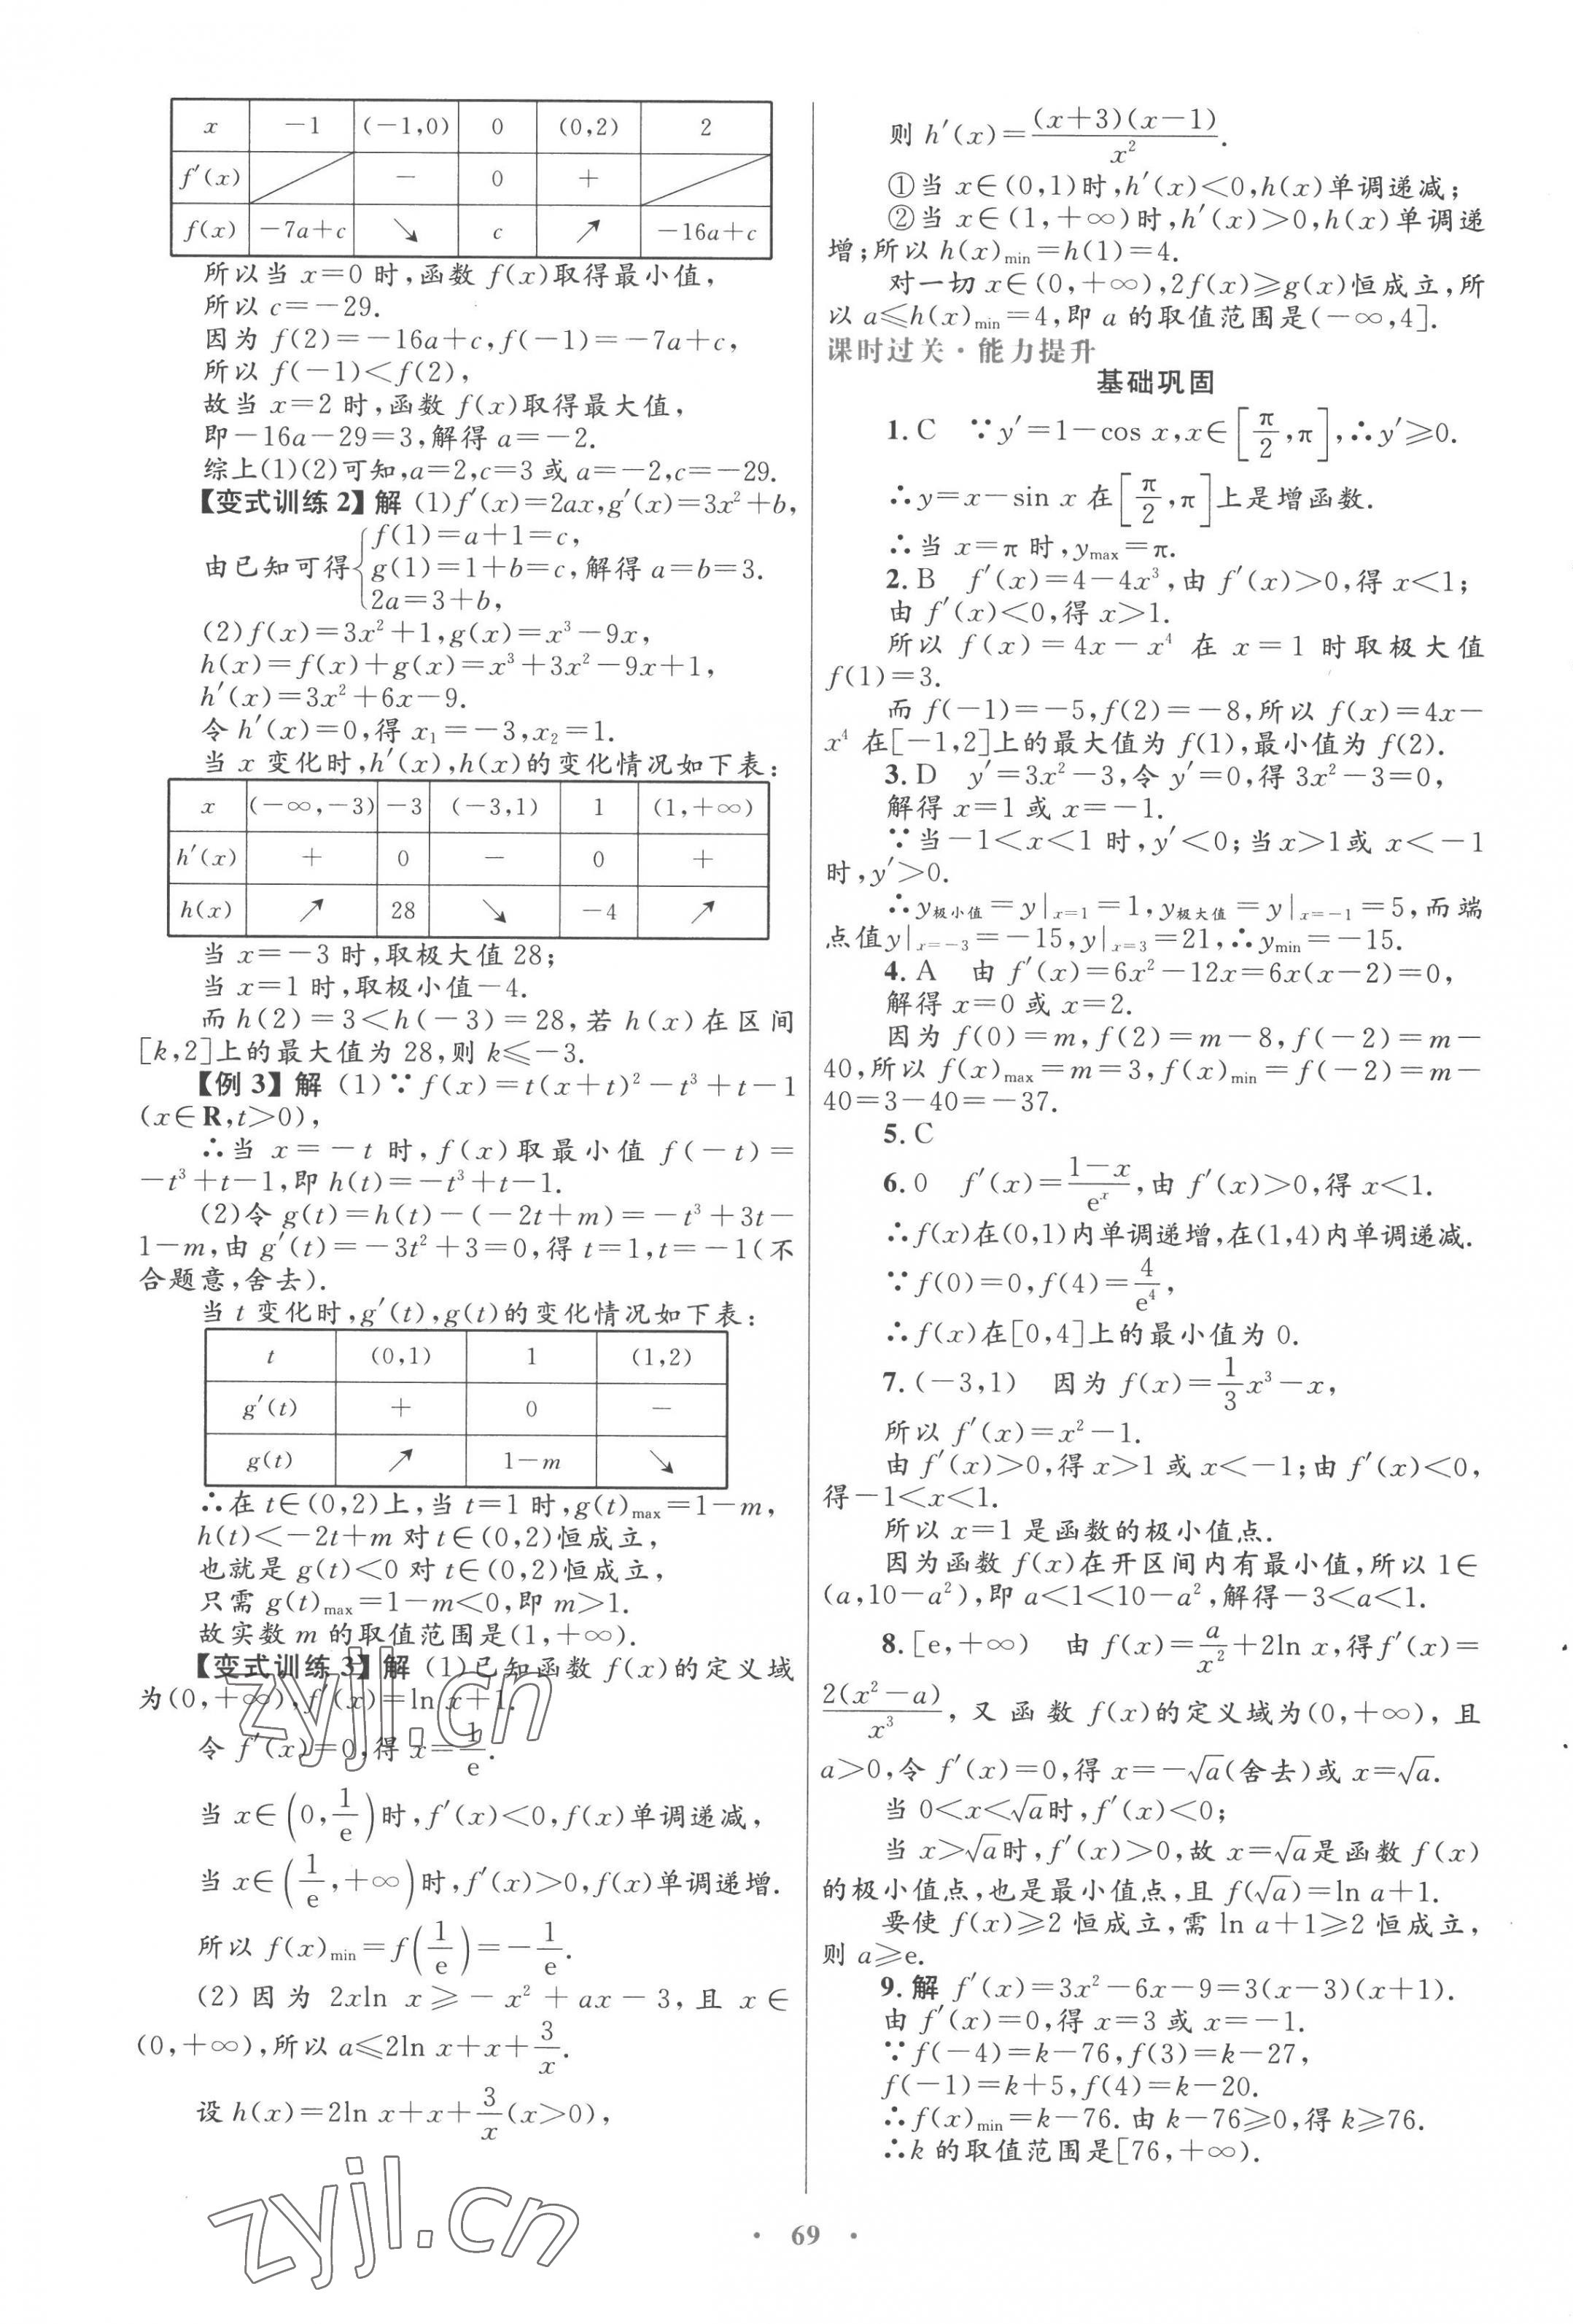 x −1 (−1,0) 0 (0,2) 2
f′(x) − 0 +
f(x) −7a+c ↘ c ↗ −16a+c
所以当 x=0 时,函数 f(x)取得最小值,
所以 c=−29.
因为 f(2)=−16a+c,f(−1)=−7a+c,
所以 f(−1)<f(2),
故当 x=2 时,函数 f(x)取得最大值,
即−16a−29=3,解得 a=−2.
综上(1)(2)可知,a=2,c=3 或 a=−2,c=−29.
【变式训练2】解 (1)f′(x)=2ax,g′(x)=3x²+b,
由已知可得{f(1)=a+1=c,
g(1)=1+b=c,解得 a=b=3.
2a=3+b,
(2)f(x)=3x²+1,g(x)=x³−9x,
h(x)=f(x)+g(x)=x³+3x²−9x+1,
h′(x)=3x²+6x−9.
令 h′(x)=0,得 x₁=−3,x₂=1.
当 x 变化时,h′(x),h(x)的变化情况如下表:
x (−∞,−3) −3 (−3,1) 1 (1,+∞)
h′(x) + 0 − 0 +
h(x) ↗ 28 ↘ −4 ↗
当 x=−3 时,取极大值 28;
当 x=1 时,取极小值−4.
而 h(2)=3<h(−3)=28,若 h(x)在区间
[k,2]上的最大值为 28,则 k≤−3.
【例3】解 (1)∵f(x)=t(x+t)²−t³+t−1
(x∈R,t>0),
∴当 x=−t 时,f(x)取最小值 f(−t)=
−t³+t−1,即 h(t)=−t³+t−1.
(2)令 g(t)=h(t)−(−2t+m)=−t³+3t−
1−m,由 g′(t)=−3t²+3=0,得 t=1,t=−1(不
合题意,舍去).
当 t 变化时,g′(t),g(t)的变化情况如下表:
t (0,1) 1 (1,2)
g′(t) + 0 −
g(t) ↗ 1−m ↘
∴在 t∈(0,2)上,当 t=1 时,g(t)max=1−m,
h(t)<−2t+m 对 t∈(0,2)恒成立,
也就是 g(t)<0 对 t∈(0,2)恒成立,
只需 g(t)max=1−m<0,即 m>1.
故实数 m 的取值范围是(1,+∞).
【变式训练3】解 (1)已知函数 f(x)的定义域
为(0,+∞),f′(x)=ln x+1.
令 f′(x)=0,得 x=1/e.
当 x∈(0,1/e)时,f′(x)<0,f(x)单调递减,
当 x∈(1/e,+∞)时,f′(x)>0,f(x)单调递增.
所以 f(x)min=f(1/e)=−1/e.
(2)因为 2xln x≥−x²+ax−3,且 x∈
(0,+∞),所以 a≤2ln x+x+3/x.
设 h(x)=2ln x+x+3/x(x>0),
则 h′(x)=(x+3)(x−1)/x².
①当 x∈(0,1)时,h′(x)<0,h(x)单调递减;
②当 x∈(1,+∞)时,h′(x)>0,h(x)单调递
增;所以 h(x)min=h(1)=4.
对一切 x∈(0,+∞),2f(x)≥g(x)恒成立,所
以 a≤h(x)min=4,即 a 的取值范围是(−∞,4].
课时过关·能力提升
基础巩固
1.C ∵y′=1−cos x,x∈[π/2,π],∴y′≥0.
∴y=x−sin x 在[π/2,π]上是增函数.
∴当 x=π 时,ymax=π.
2.B f′(x)=4−4x³,由 f′(x)>0,得 x<1;
由 f′(x)<0,得 x>1.
所以 f(x)=4x−x⁴ 在 x=1 时取极大值
f(1)=3.
而 f(−1)=−5,f(2)=−8,所以 f(x)=4x−
x⁴ 在[−1,2]上的最大值为 f(1),最小值为 f(2).
3.D y′=3x²−3,令 y′=0,得 3x²−3=0,
解得 x=1 或 x=−1.
∵当−1<x<1 时,y′<0;当x>1或 x<−1
时,y′>0.
∴y极小值=y|x=1=1,y极大值=y|x=−1=5,而端
点值y|x=−3=−15,y|x=3=21,∴ymin=−15.
4.A 由 f′(x)=6x²−12x=6x(x−2)=0,
解得 x=0 或 x=2.
因为 f(0)=m,f(2)=m−8,f(−2)=m−
40,所以 f(x)max=m=3,f(x)min=f(−2)=m−
40=3−40=−37.
5.C
6.0 f′(x)=(1−x)/eˣ,由 f′(x)>0,得 x<1.
∴f(x)在(0,1)内单调递增,在(1,4)内单调递减.
∵f(0)=0,f(4)=4/e⁴,
∴f(x)在[0,4]上的最小值为 0.
7.(−3,1) 因为 f(x)=1/3x³−x,
所以 f′(x)=x²−1.
由 f′(x)>0,得 x>1 或 x<−1;由 f′(x)<0,
得−1<x<1.
所以 x=1 是函数的极小值点.
因为函数 f(x)在开区间内有最小值,所以 1∈
(a,10−a²),即 a<1<10−a²,解得−3<a<1.
8.[e,+∞) 由 f(x)=a/x²+2ln x,得f′(x)=
2(x²−a)/x³,又函数 f(x)的定义域为(0,+∞),且
a>0,令 f′(x)=0,得 x=−√a(舍去)或 x=√a.
当 0<x<√a时,f′(x)<0;
当 x>√a时,f′(x)>0,故 x=√a是函数 f(x)
的极小值点,也是最小值点,且 f(√a)=ln a+1.
要使 f(x)≥2 恒成立,需 ln a+1≥2 恒成立,
则 a≥e.
9.解 f′(x)=3x²−6x−9=3(x−3)(x+1).
由 f′(x)=0,得 x=3 或 x=−1.
∵f(−4)=k−76,f(3)=k−27,
f(−1)=k+5,f(4)=k−20.
∴f(x)min=k−76.由 k−76≥0,得 k≥76.
∴k 的取值范围是[76,+∞).
zyjl.cn
zyjl.cn
· 69 ·